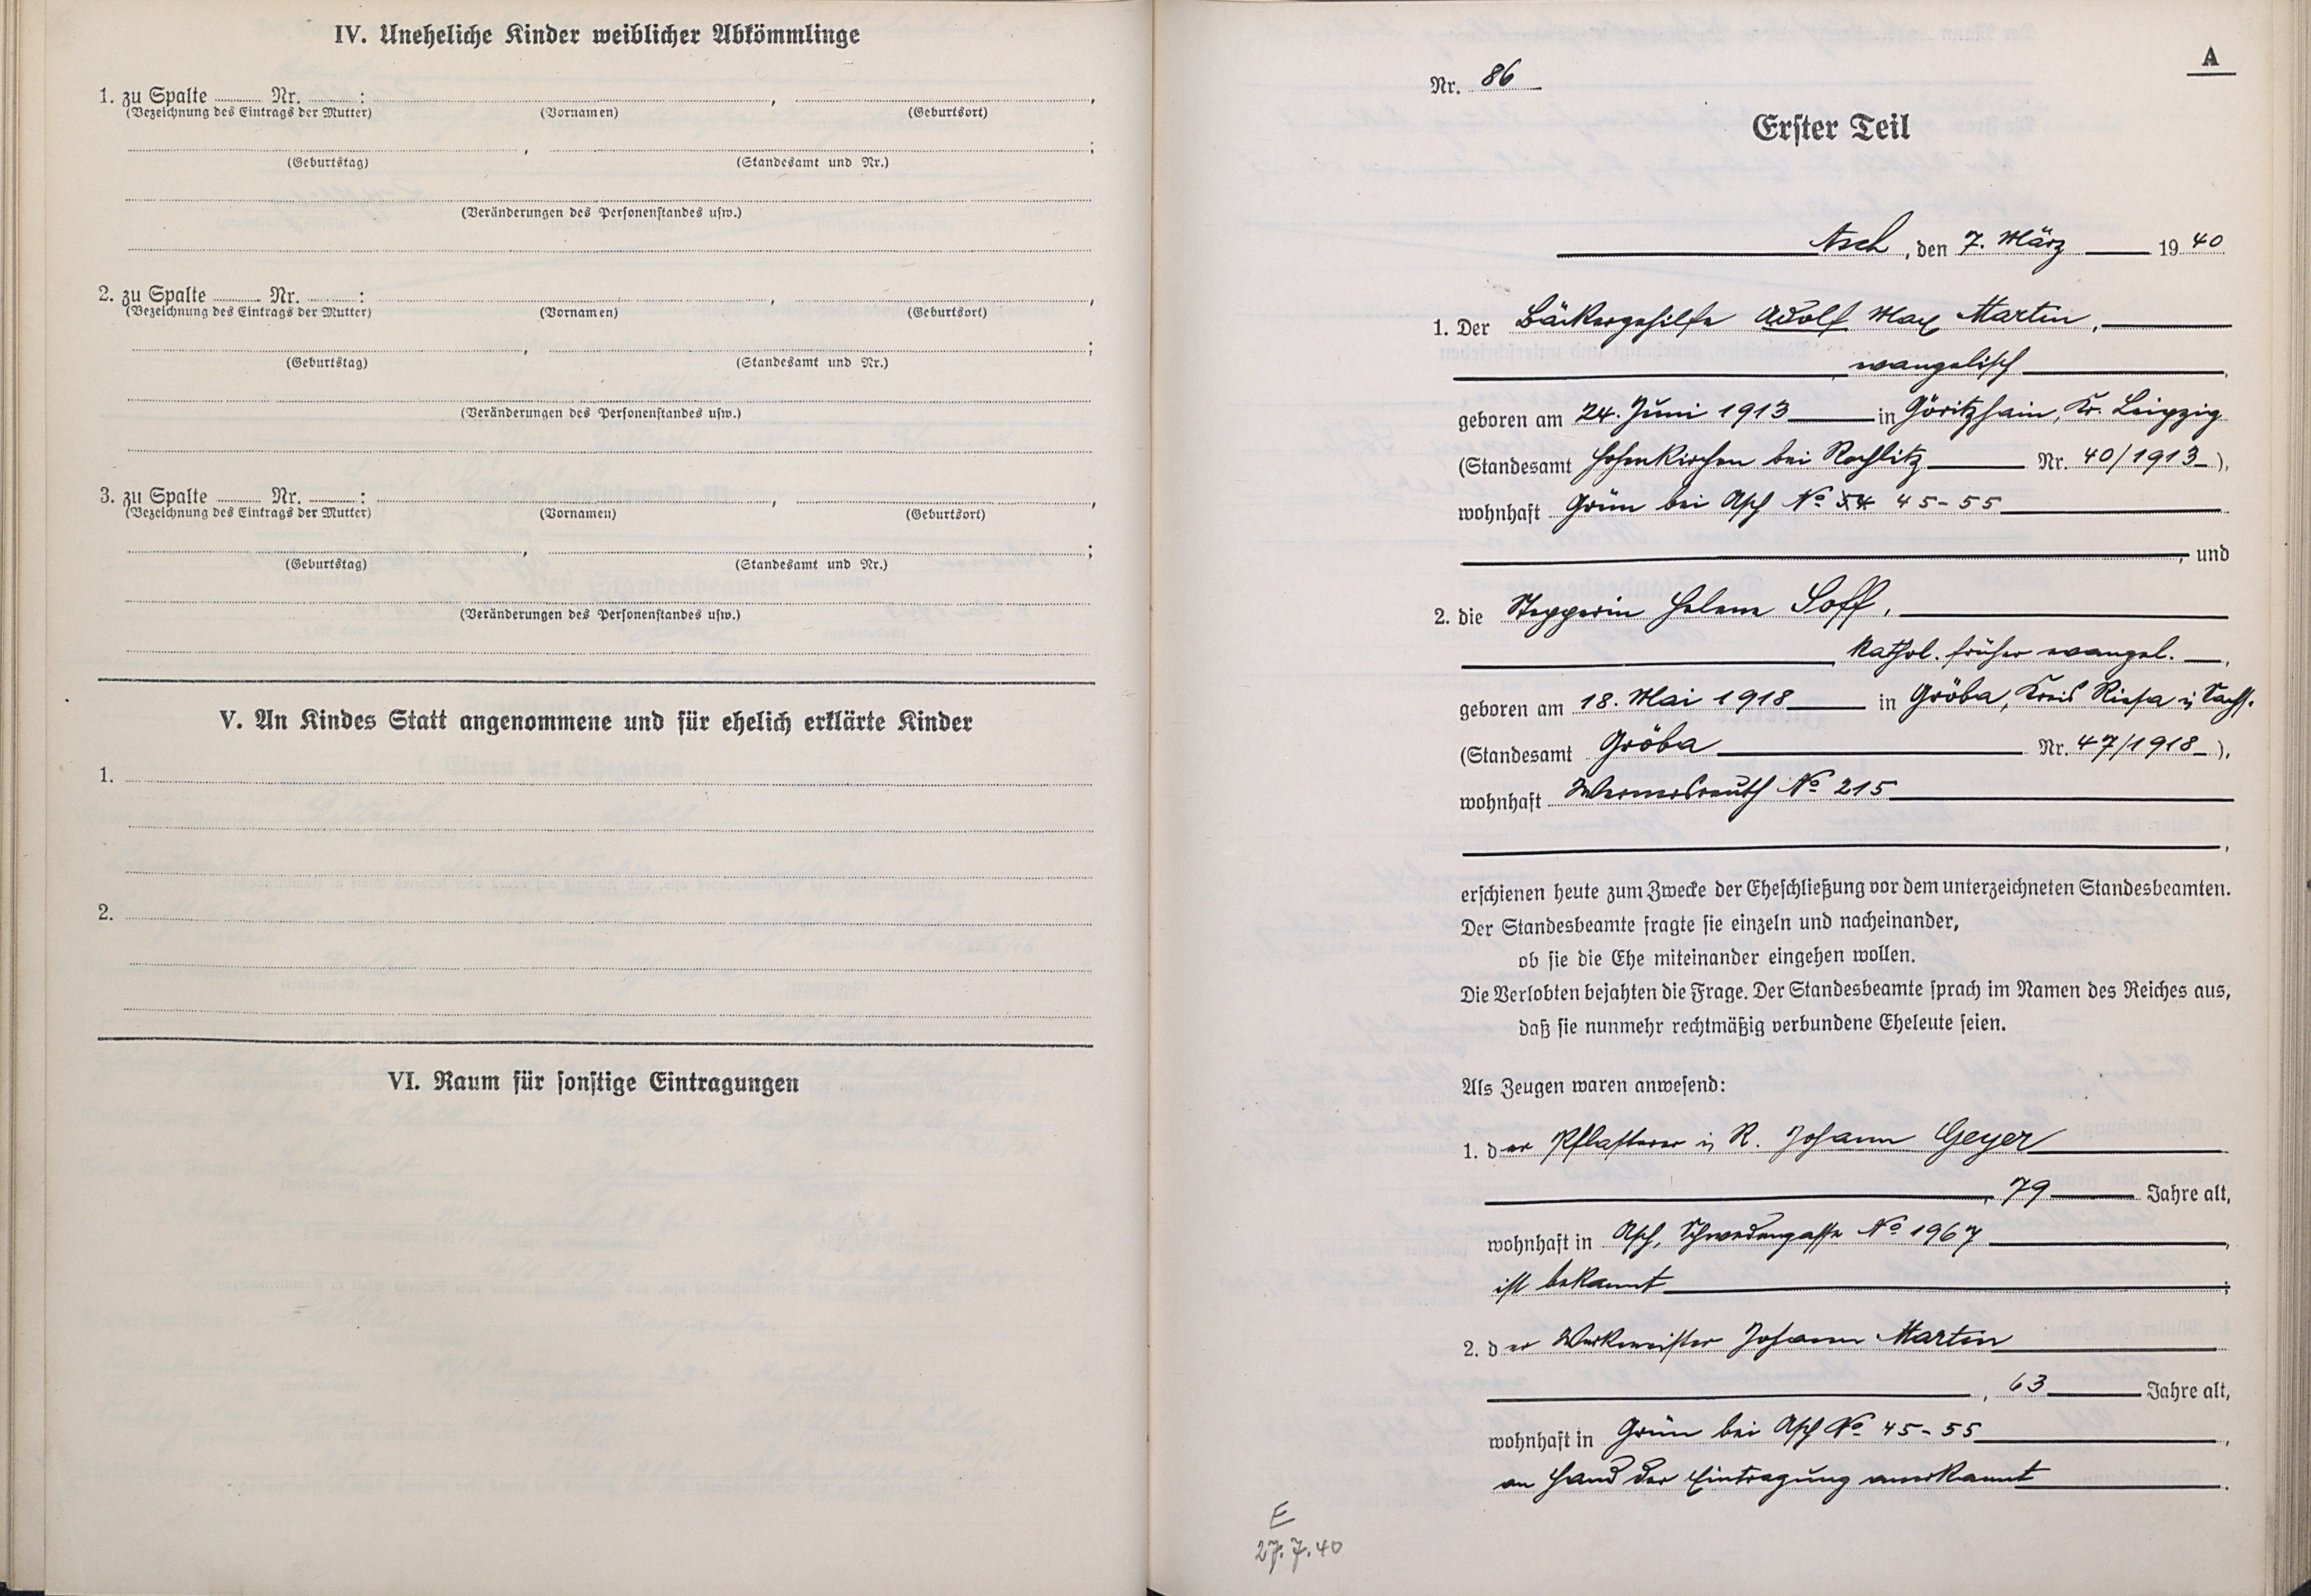 IV. Uneheliche Kinder weiblicher Abkömmlinge
1. zu Spalte Nr. : , ,
(Bezeichnung des Eintrags der Mutter) (Vornamen) (Geburtsort)
, ;
(Geburtstag) (Standesamt und Nr.)
(Veränderungen des Personenstandes usw.)
2. zu Spalte Nr. : , ,
(Bezeichnung des Eintrags der Mutter) (Vornamen) (Geburtsort)
, ;
(Geburtstag) (Standesamt und Nr.)
(Veränderungen des Personenstandes usw.)
3. zu Spalte Nr. : , ,
(Bezeichnung des Eintrags der Mutter) (Vornamen) (Geburtsort)
, ;
(Geburtstag) (Standesamt und Nr.)
(Veränderungen des Personenstandes usw.)
V. An Kindes Statt angenommene und für ehelich erklärte Kinder
1.
2.
VI. Raum für sonstige Eintragungen
A
Nr. 86
Erster Teil
Asch, den 7. März 1940
1. Der Bäckergehilfe Adolf Max Martin,
evangelisch,
geboren am 24. Juni 1913 in Göritzhain, Kr. Leipzig
(Standesamt Hohenkirchen bei Rochlitz Nr. 40/1913),
wohnhaft Grün bei Asch No 54 45-55
, und
2. die Stepperin Helene Soff,
kathol. früher evangel.,
geboren am 18. Mai 1918 in Gröba, Kreis Riesa i. Sachs.
(Standesamt Gröba Nr. 47/1918),
wohnhaft Wernersreuth No 215
,
erschienen heute zum Zwecke der Eheschließung vor dem unterzeichneten Standesbeamten.
Der Standesbeamte fragte sie einzeln und nacheinander,
ob sie die Ehe miteinander eingehen wollen.
Die Verlobten bejahten die Frage. Der Standesbeamte sprach im Namen des Reiches aus,
daß sie nunmehr rechtmäßig verbundene Eheleute seien.
Als Zeugen waren anwesend:
1. der Pflasterer i. R. Johann Geyer
, 79 Jahre alt,
wohnhaft in Asch, Schwedengasse No 1967,
ist bekannt;
2. der Werkmeister Johann Martin
, 63 Jahre alt,
wohnhaft in Grün bei Asch No 45-55,
an Hand der Eintragung anerkannt.
E
27.7.40